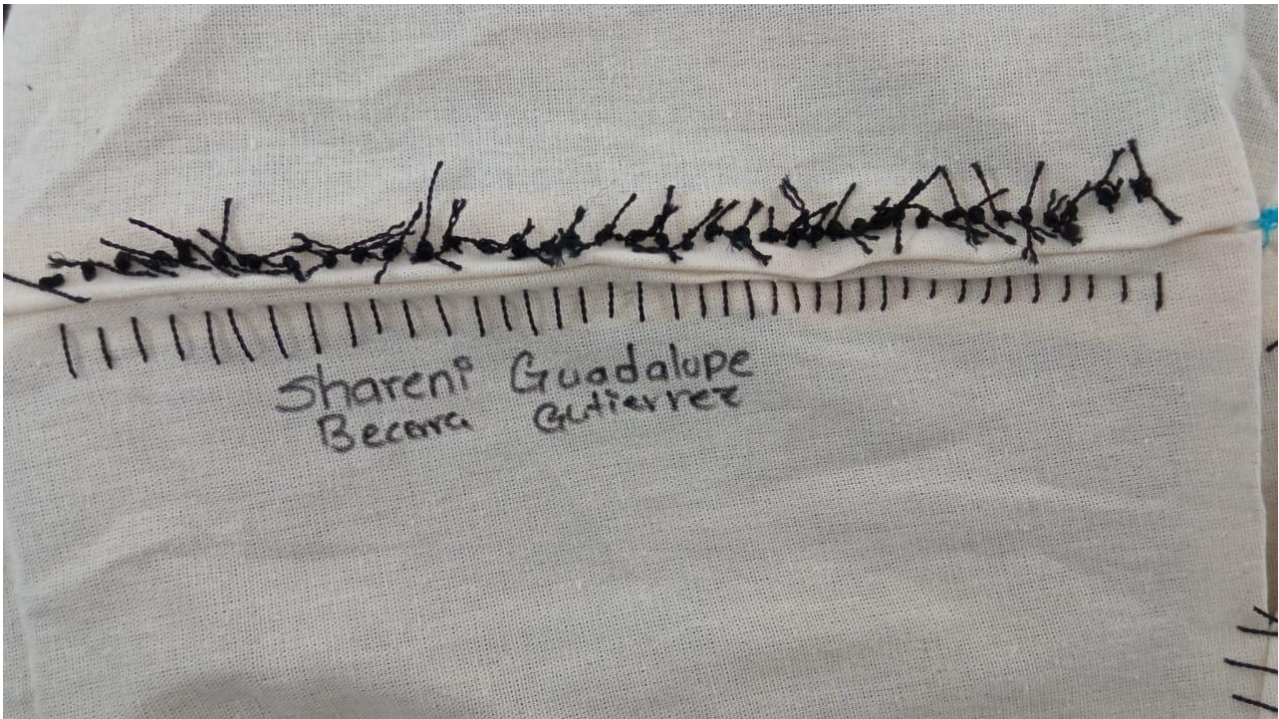 Shareni Guadalupe
Becerra Gutierrez